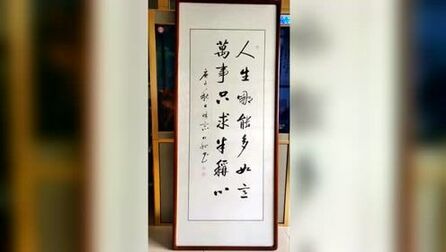 人生哪能多如意
萬事只求半稱心
庚子秋